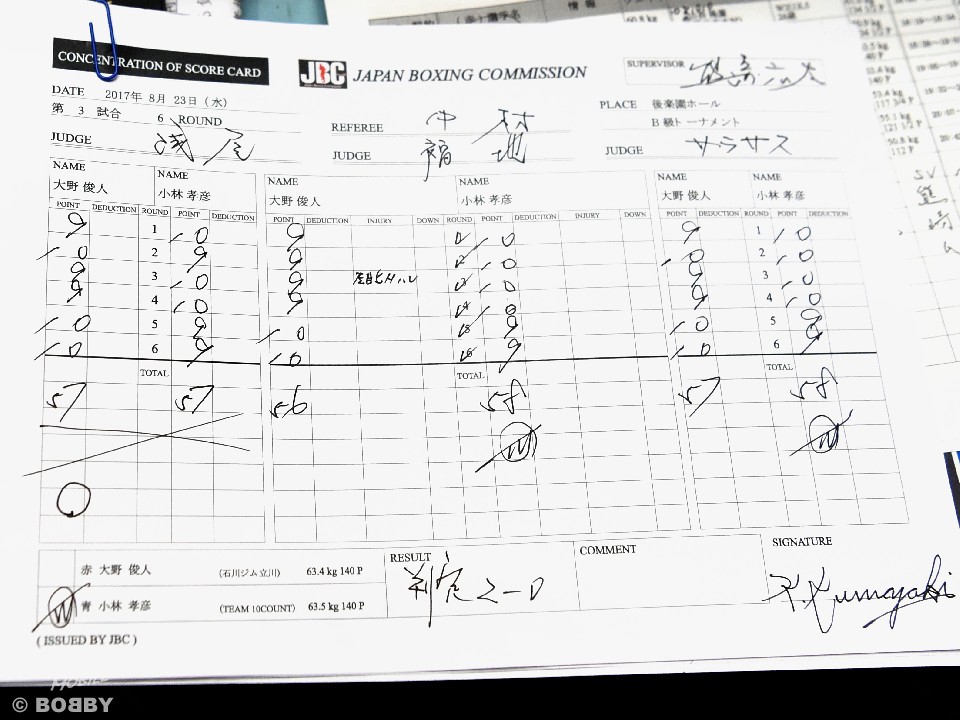 CONCENTRATION OF SCORE CARD
JBC JAPAN BOXING COMMISSION
SUPERVISOR
DATE 2017年 8月 23日 (水)
第 3 試合 6 ROUND
REFEREE 中村
PLACE 後楽園ホール
B級トーナメント
JUDGE 浅尾
JUDGE 福地
JUDGE サラサス
NAME 大野 俊人 NAME 小林 孝彦
POINT DEDUCTION ROUND POINT DEDUCTION
9 1 10
10 2 9
9 3 10
9 4 10
10 5 9
10 6 9
TOTAL
57 57
NAME 大野 俊人 NAME 小林 孝彦
POINT DEDUCTION INJURY DOWN ROUND POINT DEDUCTION INJURY DOWN
9 1 10
9 2 10
9 3 10
9 4 10
10 5 9
10 6 9
TOTAL
56 58
W
NAME 大野 俊人 NAME 小林 孝彦
POINT DEDUCTION ROUND POINT DEDUCTION
9 1 10
10 2 10
9 3 10
9 4 10
10 5 9
10 6 9
TOTAL
57 58
W
赤 大野 俊人 (石川ジム立川) 63.4 kg 140 P
W 青 小林 孝彦 (TEAM 10COUNT) 63.5 kg 140 P
RESULT 判定 2-0
COMMENT
SIGNATURE
K. Kumagaki
( ISSUED BY JBC )
© BOBBY